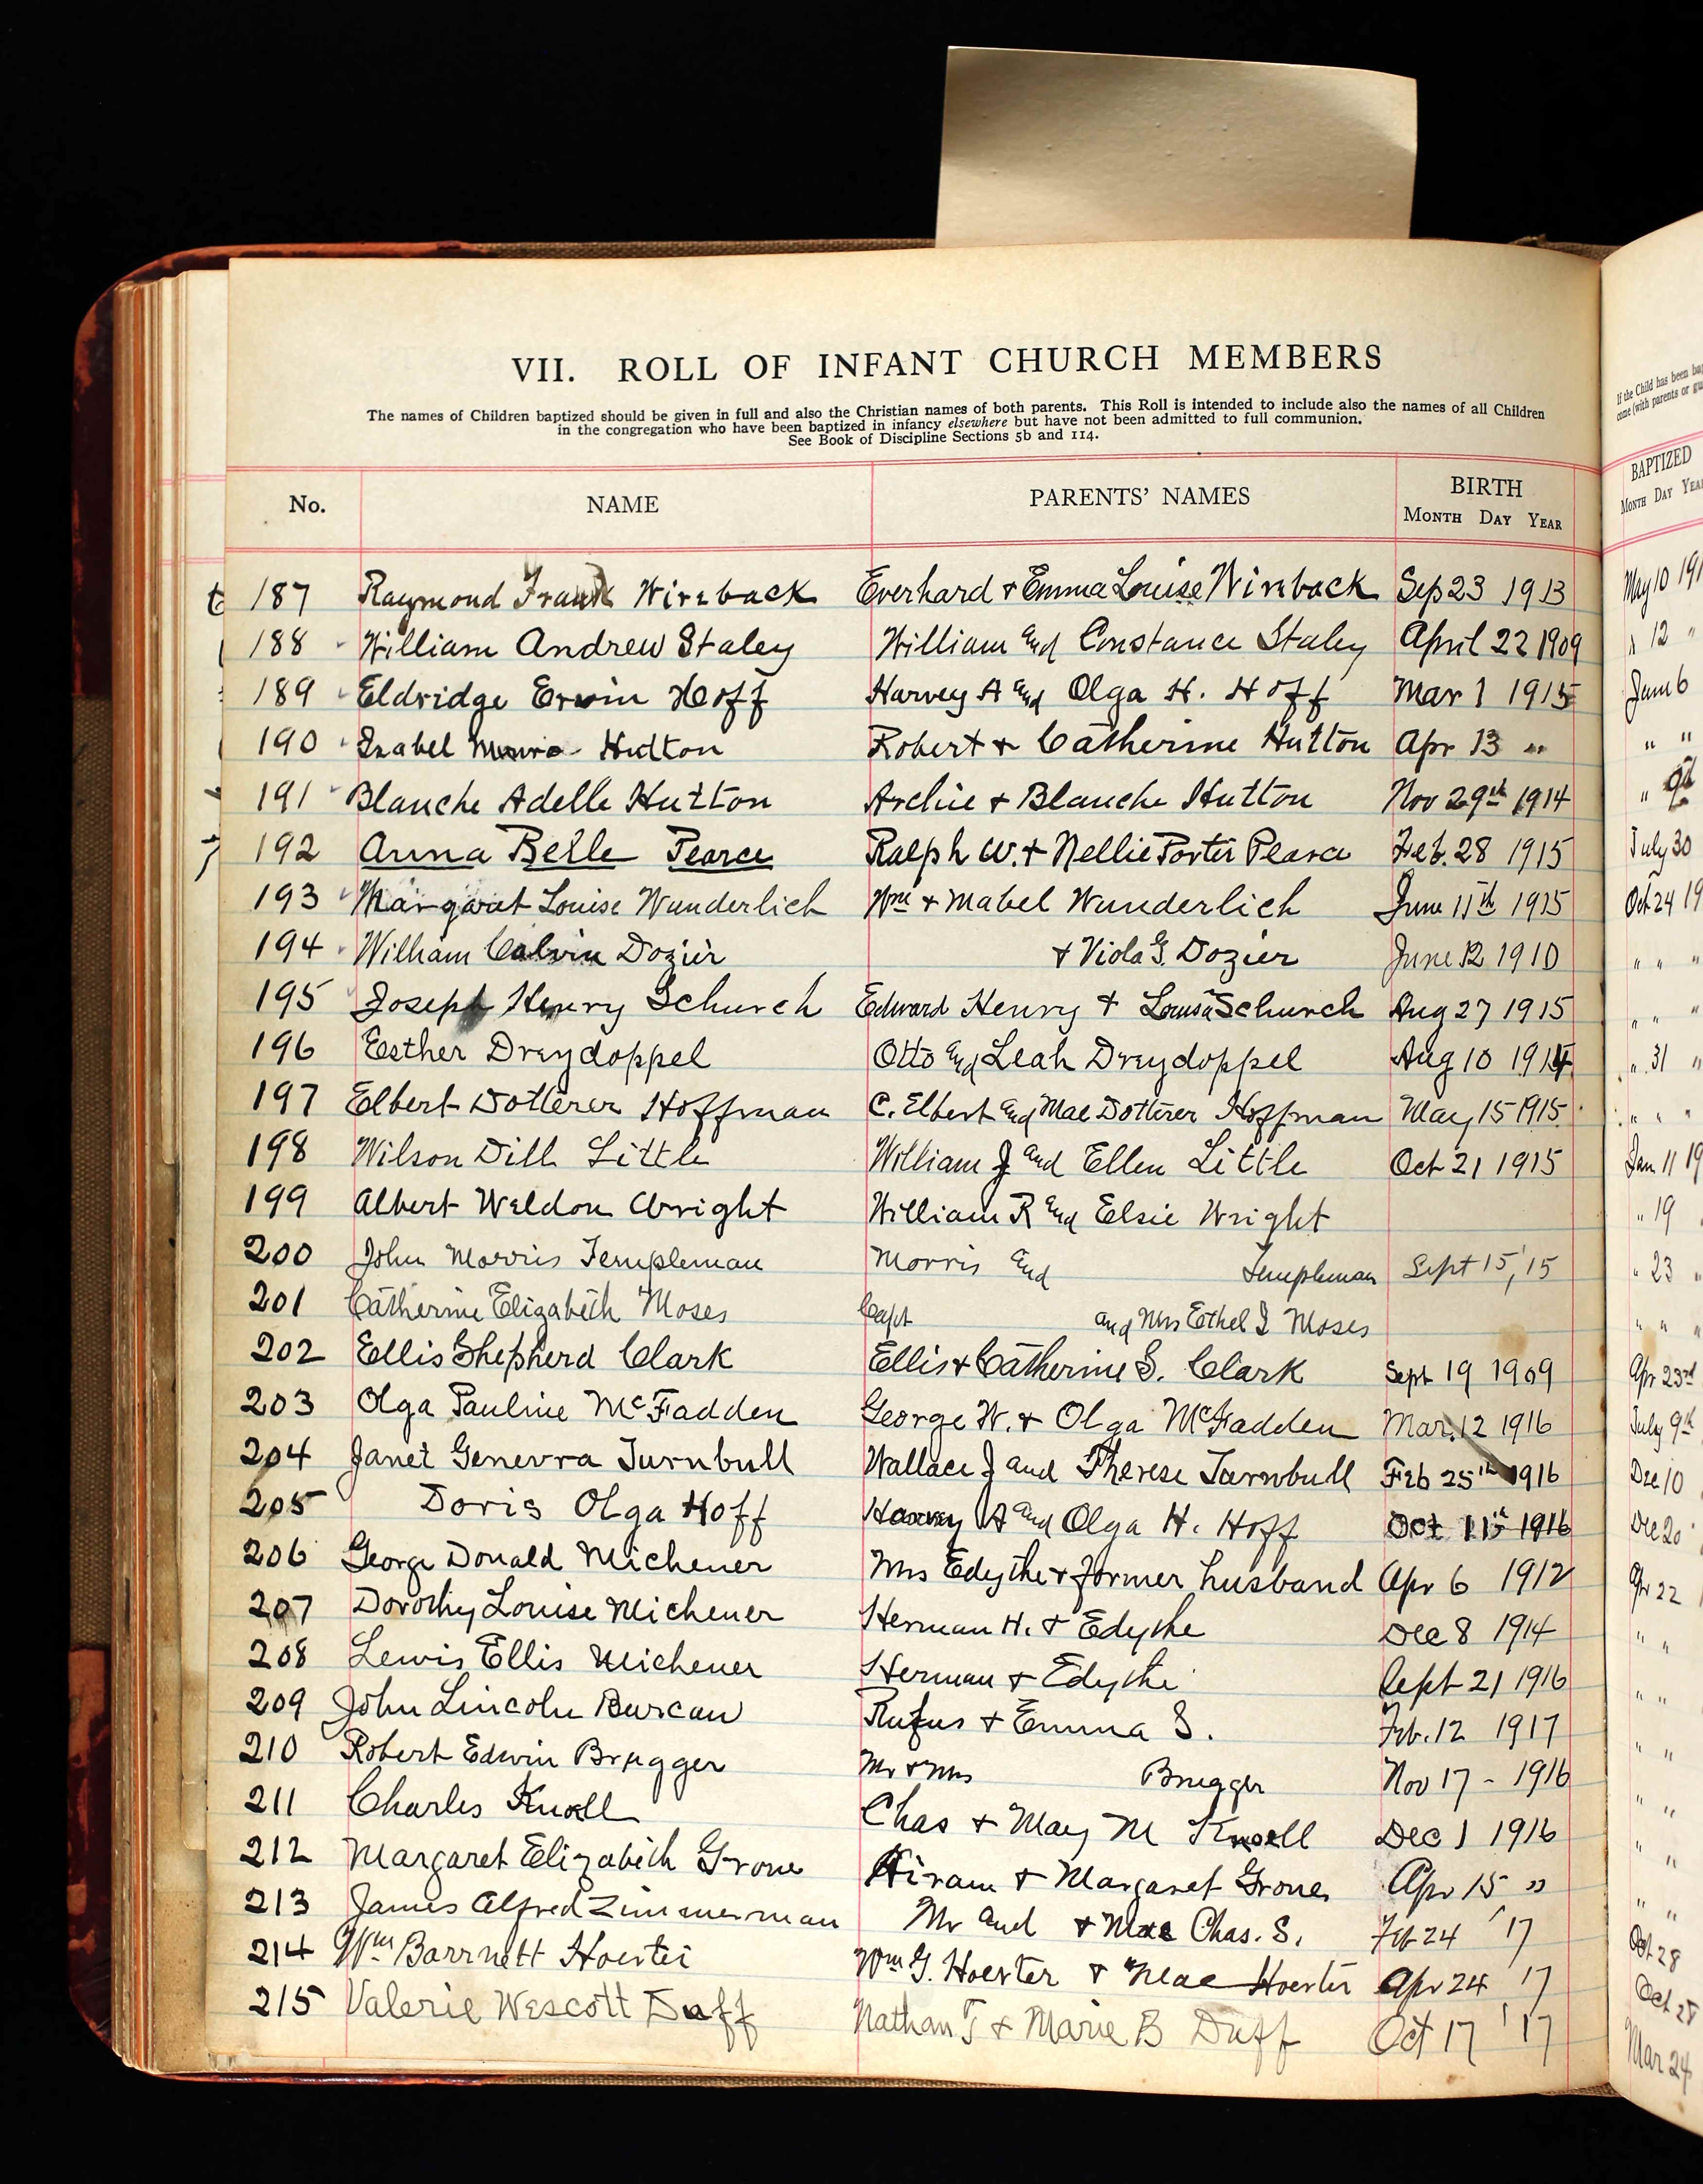 VII. ROLL OF INFANT CHURCH MEMBERS
The names of Children baptized should be given in full and also the Christian names of both parents. This Roll is intended to include also the names of all Children
in the congregation who have been baptized in infancy elsewhere but have not been admitted to full communion.
See Book of Discipline Sections 5b and 114.
No. NAME PARENTS' NAMES BIRTH BAPTIZED
MONTH DAY YEAR MONTH DAY
187 Raymond Frank Wireback Everhard + Emma Louise Wireback Sep 23 1913 May 10
188 William Andrew Staley William and Constance Staley April 22 1909 " 12 "
189 Eldridge Erwin Hoff Harvey A and Olga H. Hoff Mar 1 1915 June 6
190 Isabel Munro Hutton Robert + Catherine Hutton Apr 13 " " "
191 Blanche Adelle Hutton Archie + Blanche Hutton Nov 29th 1914 "
192 Anna Belle Pearce Ralph W. + Nellie Porter Pearce Feb. 28 1915 July 30
193 Margaret Louise Wunderlich Wm + Mabel Wunderlich June 11th 1915 Oct 24 19
194 William Calvin Dozier + Viola G. Dozier June 12 1910 " " "
195 Joseph Henry Schurch Edward Henry + Louisa Schurch Aug 27 1915 " " "
196 Esther Dreydoppel Otto and Leah Dreydoppel Aug 10 1914 " 31 "
197 Elbert Dotterer Hoffman C. Elbert and Mae Dotterer Hoffman May 15 1915 " " "
198 Wilson Dill Little William J and Ellen Little Oct 21 1915 Jan 11 19
199 Albert Weldon Wright William R and Elsie Wright " 19
200 John Morris Templeman Morris and Templeman Sept 15, '15 " 23
201 Catherine Elizabeth Moses Capt and Mrs Ethel I Moses " " "
202 Ellis Shepherd Clark Ellis + Catherine S. Clark Sept 19 1909 Apr 23rd
203 Olga Pauline McFadden George W. + Olga McFadden Mar. 12 1916 July 9th
204 Janet Genevra Turnbull Wallace J and Therese Turnbull Feb 25th 1916 Dec 10
205 Doris Olga Hoff Harvey A and Olga H. Hoff Oct 11th 1916 Dec 20
206 George Donald Michener Mrs Edythe + former husband Apr 6 1912 Apr 22
207 Dorothy Louise Michener Herman H. + Edythe Dec 8 1914 " "
208 Lewis Ellis Michener Herman + Edythe Sept 21 1916 " "
209 John Lincoln Burcaw Rufus + Emma S. Feb. 12 1917 " "
210 Robert Edwin Brugger Mr + Mrs Brugger Nov 17 - 1916 " "
211 Charles Knoll Chas + May M Knoll Dec 1 1916 " "
212 Margaret Elizabeth Grone Hiram + Margaret Grone Apr 15 " " "
213 James Alfred Zimmerman Mr and + Mae Chas. S. Feb 24 '17 Oct 28
214 Wm Barrnett Hoerter Wm G. Hoerter + Mae Hoerter Apr 24 '17 Oct 28
215 Valerie Wescott Duff Nathan T + Marie B Duff Oct 17 '17 Mar 24